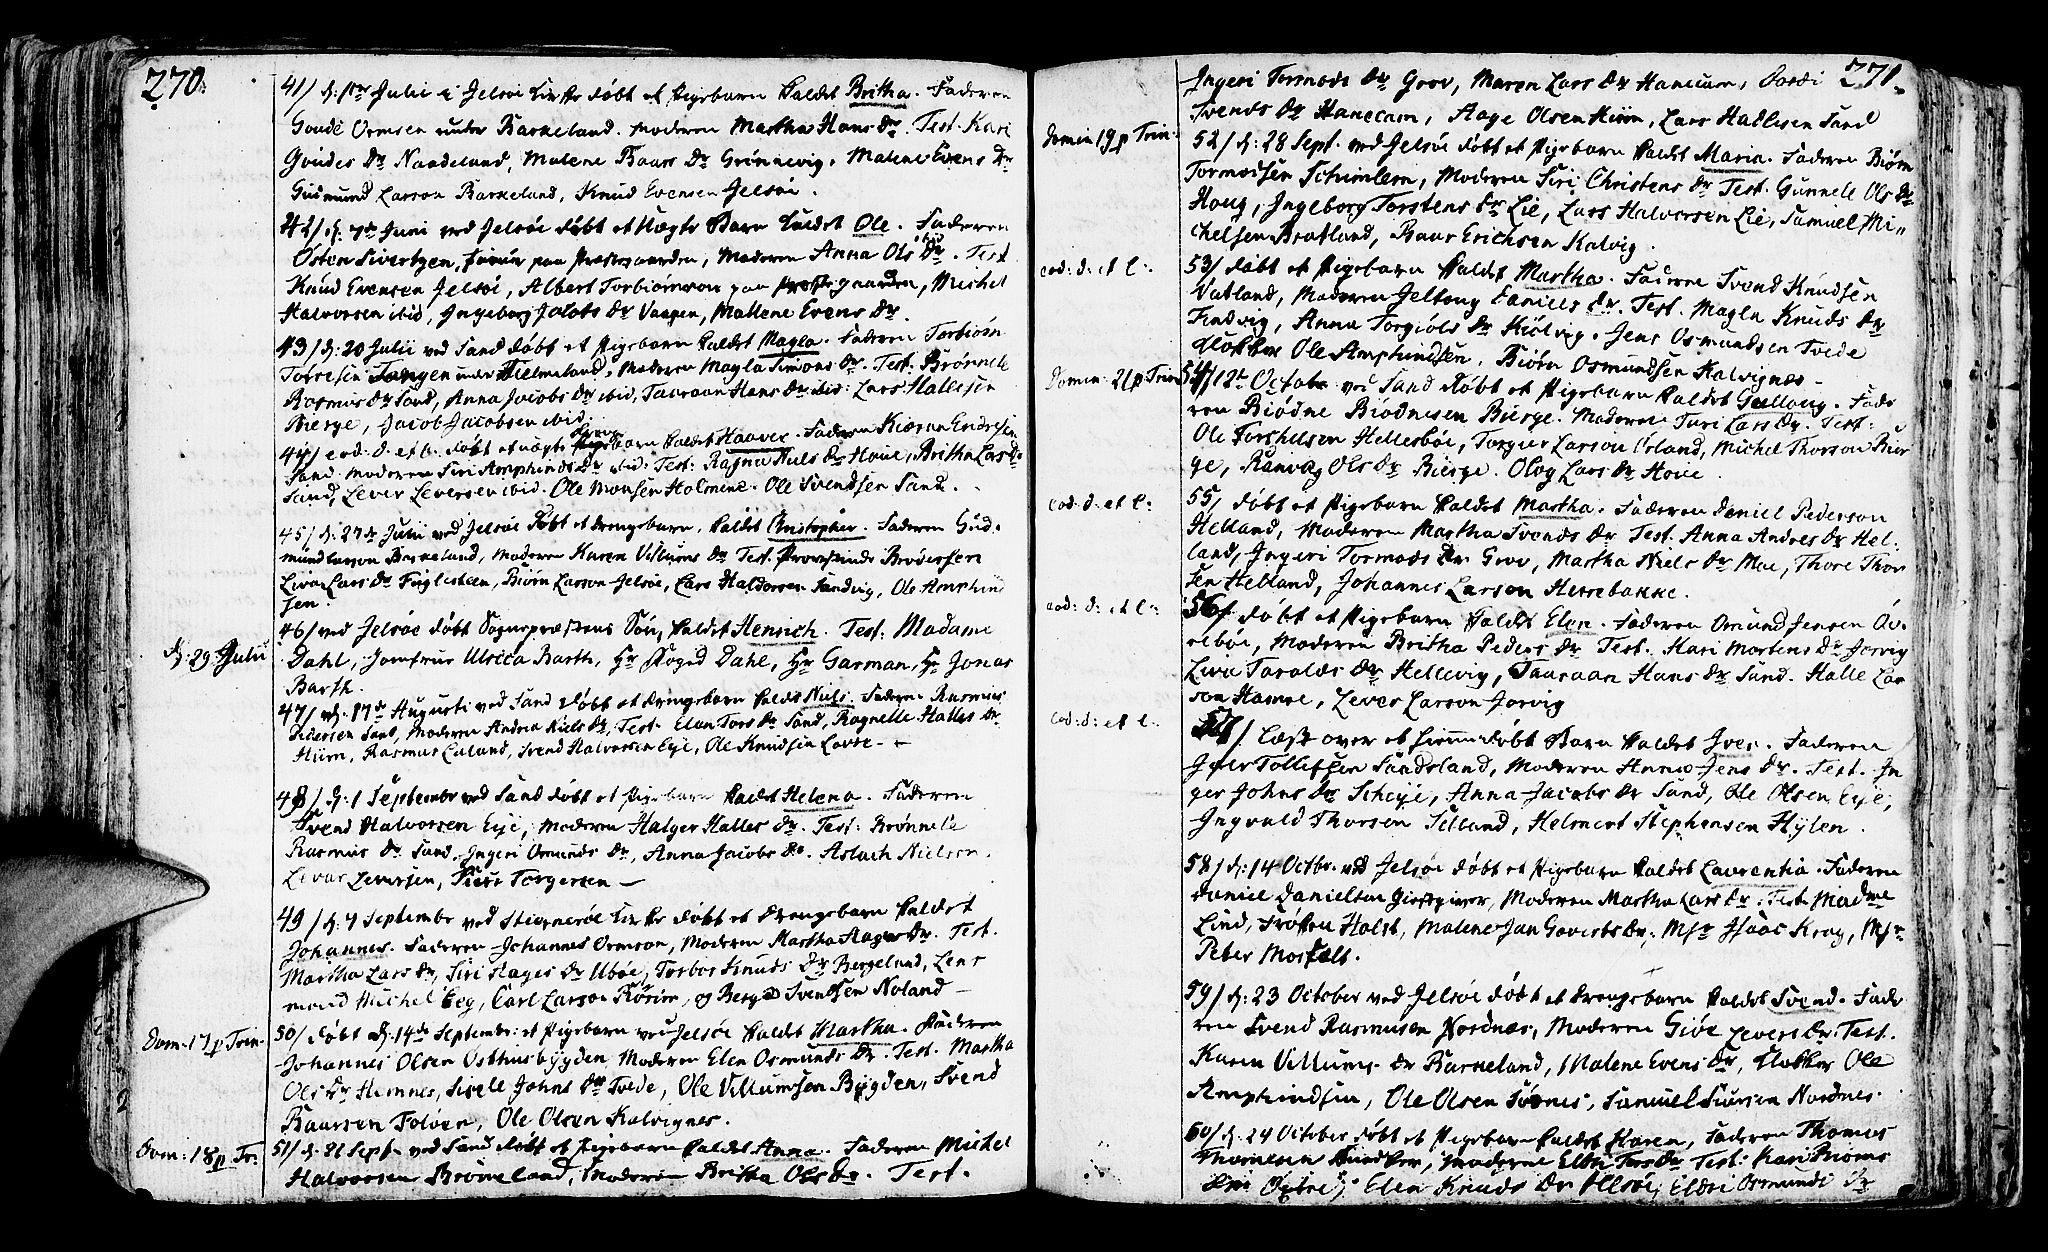 270.
41/ d: 1ste Julii i Jelsøe Kirke døbt et Pigebarn kaldet Britha. Faderen
Goude Ormsen under Barkeland. Moderen Martha Hans Dr. Test. Kari
Goudes Dr Naadeland, Malene Baars Dr Grønnevig. Malene Evens Dr
Gudmund Larson Barkeland, Knud Evensen Jelsøe.
42/ d. 7de Juni ved Jelsøe døbt et Uægte Barn kaldet Ole. Faderen
Østen Sivertzen, paa Præstegaarden, Moderen Anna Ols Dr ibid. Test
Knud Evensen Jelsøe, Albert Torbiørnson paa Præstegaarden, Michel
Halvorsen ibid, Ingeborg Jacobs Dr Vaagen, Mallene Evens Dr.
43/ d: 20 Julii ved Sand døbt et Pigebarn kaldet Magla. Faderen Torbiørn
Torresen Tangen under Hielmeland. Moderen Magla Simons Dr. Test. Brønnele
Rasmus Dr Sand, Anna Jacobs Dr ibid, Tauraan Hans Dr ibid: Lars Hallesen
Bierge, Jacob Jacobsen ibid.
44/ eod. d. et l. døbt et uægte Drengebarn kaldet Haaver. Faderen Endresen
Sand. Moderen Siri Amphinds Dr ibid. Test: Ragna Niels Dr Houe, Britha Lars Dr
Sand, Lever Leversen ibid. Ole Monsen Holmene. Ole Svendsen Sand.
45/ d: 27de Julii ved Jelsøe døbt et Drengebarn, kaldet Christopher. Faderen Gud-
mund Larson Barkeland, Moderen Karen Villums Dr Test. Brødersen
Livar Lars Dr Fuglesteen, Biørn Larson Jelsøe, Lars Haldorsen Sandvig, Ole Amphind
sen.
d: 29 Julii
46/ ved Jelsøe døbt Sognepræstens Søn, kaldet Henrich. Test: Madame
Dahl, Jomfrue Ulrica Barth, Hr Foged Dahl, Hr Garman, Hr Jonas
Barth.
47/ d: 17de Augusti ved Sand døbt et Drengebarn kaldet Niels. Faderen Rasmus
Pedersen Sand, Moderen Andrea Niels Dr, Test. Elen Tors Dr Sand, Ragnelle Halles Dr
Hiim, Rasmus Laland, Svend Halvorsen Eye, Ole Knudsen Lovre.
48/ d: 1 Septembr ved Sand døbt et Pigebarn kaldet Helena. Faderen
Svend Halvorsen Eye, Moderen Halger Halles Dr. Test: Brønnele
Rasmus Dr Sand. Ingeri Osmunds Dr, Anna Jacobs Dr. Aslach Nielsen.
Levar Leversen, Torgersen
49/ d: 4 Septembr ved Stiernerøe Kirke døbt et Drengebarn kaldet
Johannes. Faderen Johannes Ormson, Moderen Martha Aages Dr. Test.
Martha Lars Dr, Siri Aages Dr Uboe, Torbor Knuds Dr Bergeland, Lens
mand Michel Eeg, Carl Larson, og Svendsen Noland
Dom: 17 p Trin.
50/ døbt d. 14de Septembr: et Pigebarn ved Jelsøe kaldet Martha. Faderen
Johannes Olsen Østhusbygden, Moderen Elen Osmunds Dr. Test. Martha
Ols Dr Hemnes, Sisele Johns Dr Tvede, Ole Villumsen Bygden, Svend
Baarsen Foløen, Ole Olsen Kalvignes.
Dom: 18 p Tr.
51/ d: 21 Sept. ved Sand døbt et Pigebarn kaldet Anna. Faderen Michel
Halvorsen Brønneland, Moderen Britha Ols Dr. Test.
271.
Ingeri Tormods Dr Grov, Maren Lars Dr Hanecam, Dordi
Svends Dr Hanecam, Aage Olsen Hiim, Lars Hadlesen Sand
Domin 19 p Trin.
52/ d: 28 Sept. ved Jelsøe døbt et Pigebarn kaldet Maria. Faderen Biørn
Tormodsen Schimlem, Moderen Siri Christens Dr Test. Gunnele Ols Dr
Houg, Ingeborg Torstens Dr Lie, Lars Halvorsen Lie, Samuel Mi-
chelsen Bratland, Baar Erichsen Kalvig.
eod: d: et l:
53/ døbt et Pigebarn kaldet Martha. Faderne Svend Knudsen
Vatland, Moderen Jeltoug Daniels Dr. Test. Magla Knuds Dr
Findvig, Anna Torgiøls Dr Kiølvig. Jens Osmundsen Tvede
Klokker Ole Amphindsen, Biørn Osmundsen Kalvignes.
Domin: 21 p Trin
54/ 12te October ved Sand døbt et Pigebarn kaldet Gulloug. Fade
ren Biødne Biødnesen Bierge. Moderen Turi Lars Dr. Test:
Ole Torchelsen Hellesbøe, Torgier Larson Ørland, Michel Thorson Bier
ge, Ranvæg Ols Dr Bierge. Olog Lars Dr Houe.
eod: d: et l:
55/ døbt et Pigebarn kaldet Martha. Faderen Daniel Pederson
Helland, Moderen Martha Svends Dr Test. Anna Andres Dr Hel-
land, Ingeri Tormods Dr Grov, Martha Niels Dr Moe, Thore Thor
sen Helland, Johannes Larson Herrebakke.
eod: d: et l:
56/ døbt et Pigebarn kaldet Elen. Faderen Osmund Jensen Øv-
rebøe, Moderen Britha Peders Dr Test. Kari Mortens Dr Jorvig
Liva Taralds Dr Hellevig, Tauraan Hans Dr Sand. Halle Lar
son Hamoe, Lever Larson Jorvig
eod: d: et l:
57/ Læst over et hiemmedøbt Barn kaldet Iver. Faderen
Iver Tolleifsen Sandsland, Moderen Anna Jens Dr. Test. In
ger Johns Dr Scheye, Anna Jacobs Dr Sand, Ole Olsen Eye,
Ingvald Thorson Selland, Helmert Stephensen Hylen.
58/ d: 14 Octbr. ved Jelsøe døbt et Pigebarn kaldet Laurentia. Faderen
Daniel Danielsen Giestgiver, Moderen Martha Lars Dr. Test. Madme
Lind, Frøken Holst, Malene Jan Goverts Dr; Msr Isaac Krog, Msr
Peter Mosfelt.
59/ d: 23 October ved Jelsøe døbt et Drengebarn kaldet Svend. Fade-
ren Svend Rasmusen Nordnæs, Moderen Giøe Levers Dr. Test.
Karen Villums Dr Barkeland, Malene Evens Dr, Klokker Ole
Amphindsen, Ole Olsen Sørnes, Samuel Siursen Nordnes.
60/ d: 24 October døbt et Pigebarn kaldet Karen, Faderen Thomas
Thomesen, Moderen Eldri Tors Dr Test: Kari Biørns
Elen Knuds Dr, Eldri Osmunds Dr